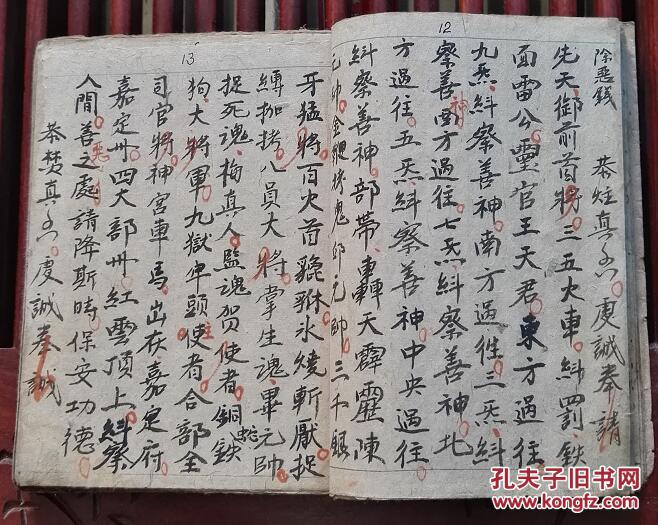 12
除惡錢 恭炷真香虔誠奉請
先天御前首將三五火車糾罰鉄
面雷公靈官王天君東方過往
九炁糾察善神南方過徃三炁糾
察善神西方過往七炁糾察善神北
方過往五炁糾察善神中央過往
糾察善神部帶轟天霹靂陳
元帥金鎚拷鬼邱元帥三千銀
13
牙猛將百火首貔貅氷燒斬厭捉
縛枷拷八員大將掌生魂畢元帥
捉死魂梅真人監魂賀使者銅蛇鉄
狗大將軍九獄牢頭使者合部全
司官將神宮車馬出在嘉定府
嘉定州四大部州紅雲頂上糾察
人間善惡之處請降斯時保安功德
恭焚真香虔誠奉誠
孔夫子旧书网
www.kongfz.com